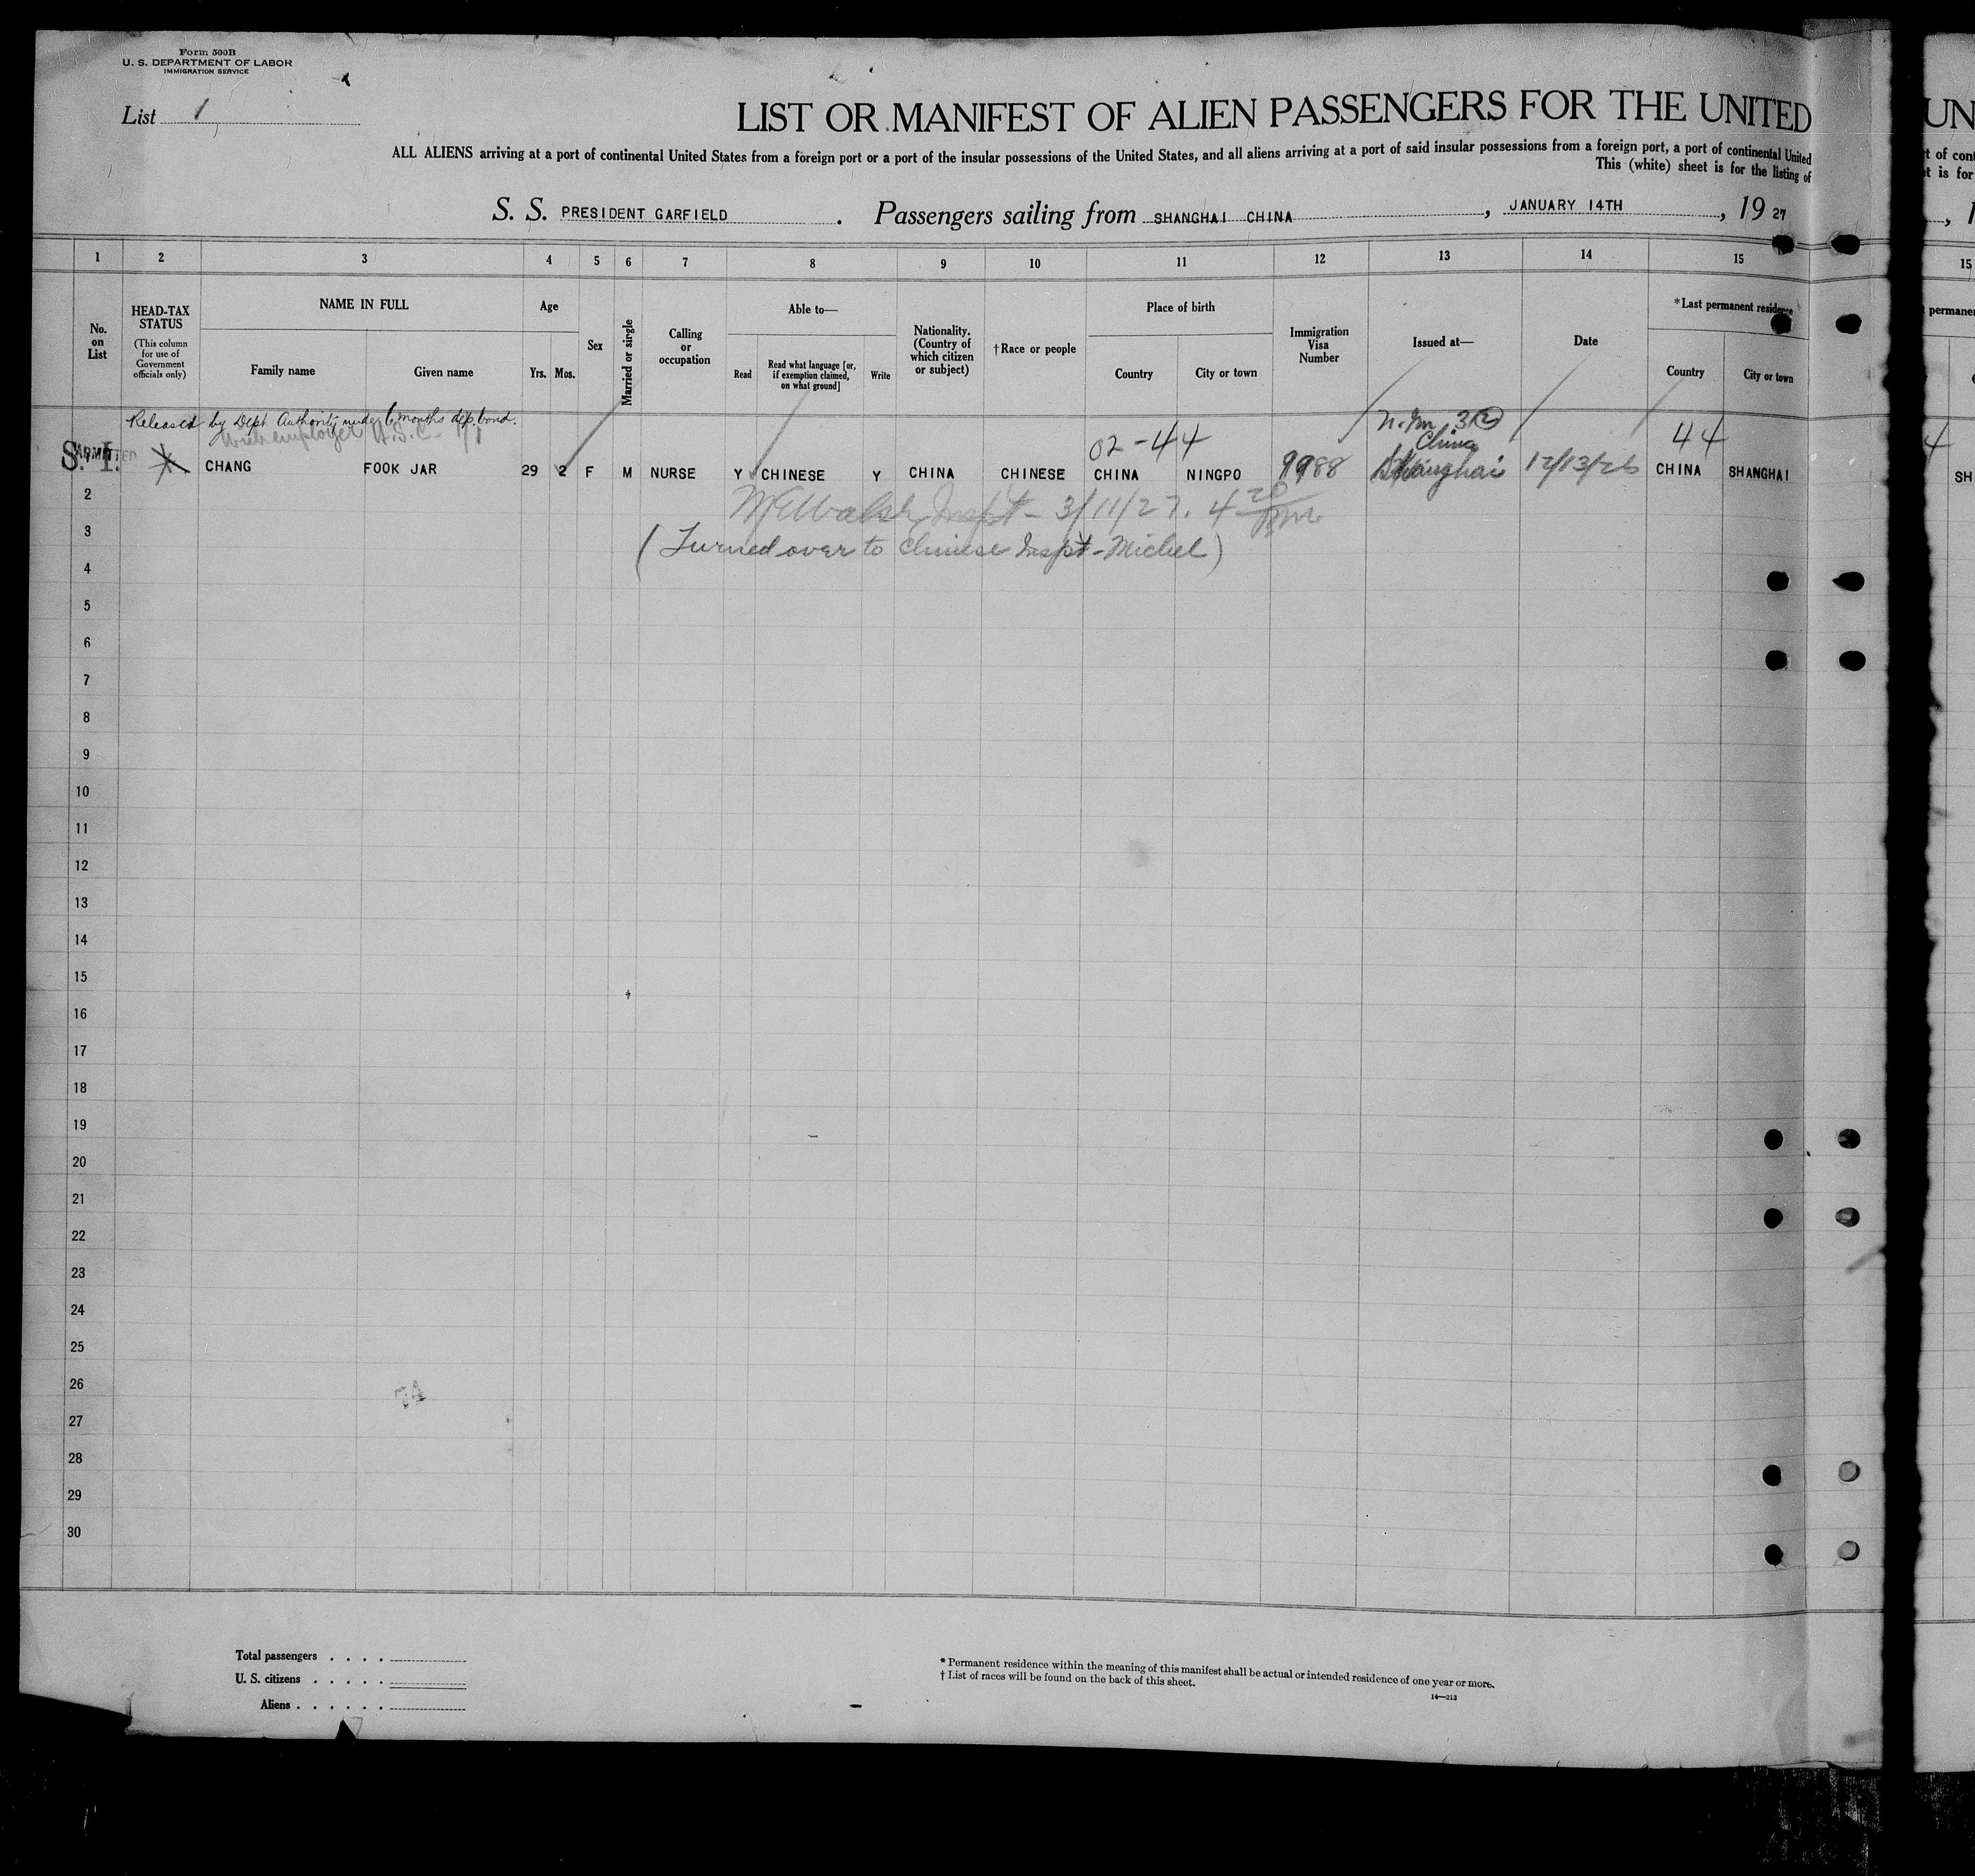 Form 500B
U. S. DEPARTMENT OF LABOR
IMMIGRATION SERVICE
List 1
LIST OR MANIFEST OF ALIEN PASSENGERS FOR THE UNITED
ALL ALIENS arriving at a port of continental United States from a foreign port or a port of the insular possessions of the United States, and all aliens arriving at a port of said insular possessions from a foreign port, a port of continental United
This (white) sheet is for the listing of
S. S. PRESIDENT GARFIELD . Passengers sailing from SHANGHAI CHINA , JANUARY 14TH , 19 27
1 2 3 4 5 6 7 8 9 10 11 12 13 14 15
No. on List
HEAD-TAX STATUS
(This column for use of Government officials only)
NAME IN FULL
Family name
Given name
Age
Yrs. Mos.
Sex
Married or single
Calling or occupation
Able to—
Read
Read what language [or, if exemption claimed, on what ground]
Write
Nationality. (Country of which citizen or subject)
†Race or people
Place of birth
Country
City or town
Immigration Visa Number
Issued at—
Date
*Last permanent residence
Country
City or town
Released by Dept. Authority under 6 months dep. bond.
02-44
China
44
S. I. ADMITTED CHANG FOOK JAR 29 2 F M NURSE Y CHINESE Y CHINA CHINESE CHINA NINGPO 9988 Shanghai 12/13/26 CHINA SHANGHAI
2
Inspt - 3/11/27. 4 20
3
(Turned over to Chinese Inspt - Michel)
4
5
6
7
8
9
10
11
12
13
14
15
16
17
18
19
20
21
22
23
24
25
26
27
28
29
30
Total passengers . . . .
U. S. citizens . . . . .
Aliens . . . . . .
* Permanent residence within the meaning of this manifest shall be actual or intended residence of one year or more.
† List of races will be found on the back of this sheet.
14—213
UN
t of cont
t is for
, 1
15
permanen
4
SH